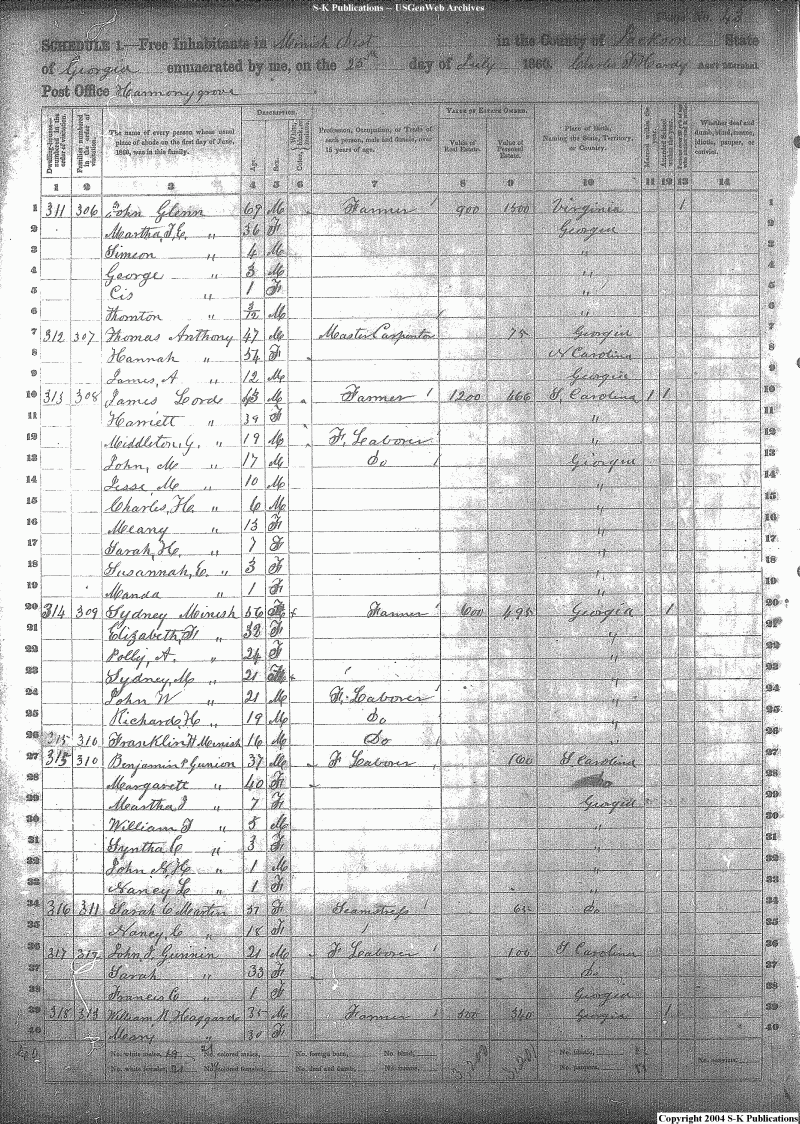 S-K Publications -- USGenWeb Archives
Page No. 43
SCHEDULE 1.—Free Inhabitants in Minish Dist in the County of Jackson State
of Georgia enumerated by me, on the 25th day of July 1860. Charles T. Hardy Ass't Marshal
Post Office Harmonygrove
DESCRIPTION. VALUE OF ESTATE OWNED.
Dwelling-houses—numbered in the order of visitation. Families numbered in the order of visitation. The name of every person whose usual place of abode on the first day of June, 1860, was in this family. Age. Sex. Color, White, black, or mulatto. Profession, Occupation, or Trade of each person, male and female, over 15 years of age. Value of Real Estate. Value of Personal Estate. Place of Birth, Naming the State, Territory, or Country. Married within the year. Attended School within the year. Whether deaf and dumb, blind, insane, idiotic, pauper, or convict.
1 2 3 4 5 6 7 8 9 10 11 12 13 14
1 311 306 John Glenn 69 M Farmer 900 1500 Virginia 1 1
2 Martha, J.C. " 36 F Georgia 2
3 Simeon " 4 M " 3
4 George " 3 M " 4
5 Cis " 1 F " 5
6 Thornton " 3/12 M " 6
7 312 307 Thomas Anthony 47 M Master Carpenter 75 Georgia 7
8 Hannah " 54 F N Carolina 8
9 James, A " 12 M Georgia 9
10 313 308 James Lord 43 M Farmer 1200 466 S. Carolina 1 1 10
11 Harriett " 39 F " 11
12 Middleton, G. " 19 M F. Laborer " 12
13 John, M " 17 M Do Georgia 13
14 Jesse, M " 10 M " 14
15 Charles, H. " 6 M " 15
16 Meany " 13 F " 16
17 Sarah, H. " 7 F " 17
18 Susannah, E. " 3 F " 18
19 Manda " 1 F " 19
20 314 309 Sydney Minish 56 Farmer 600 495 Georgia 1 20
21 Elizabeth, F " 32 F " 21
22 Polly, A. " 24 F " 22
23 Sydney, M " 21 " 23
24 John W " 21 M F. Laborer " 24
25 Richard, H " 19 M Do " 25
26 315 310 Franklin H Minish 16 M Do " 26
27 315 310 Benjamin P. Gunion 37 M F Laborer 160 S Carolina 27
28 Margarett " 40 F Do 28
29 Martha J " 7 F Georgia 29
30 William T " 5 M " 30
31 Syntha C " 3 F " 31
32 John N. H " 1 M " 32
33 Nancy L " 1 F " 33
34 316 311 Sarah C Martin 37 F Seamstress 65 Do 34
35 Nancy, C " 18 F " 35
36 317 312 John J. Gunnin 21 M F Laborer 100 S Carolina 36
37 Sarah " 33 F Do 37
38 Francis C " 1 F Georgia 38
39 318 313 William N Haggard 35 M Farmer 500 340 Georgia 1 39
40 Meany " 30 F " 40
No. white males, 19 No. colored males, No. foreign born, No. blind, No. idiotic, No. convicts,
No. white females, 21 No. colored females, No. deaf and dumb, No. insane, No. paupers,
3,200 3,201
Copyright 2004 S-K Publications